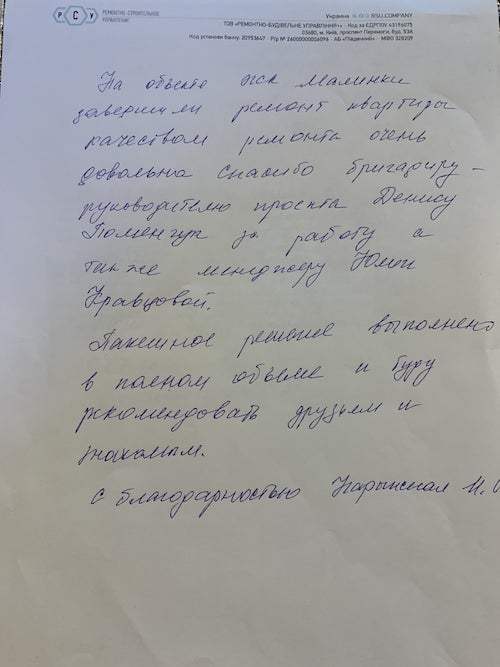 РСУ
РЕМОНТНО-СТРОИТЕЛЬНОЕ
УПРАВЛЕНИЕ
Украина RSU.COMPANY
ТОВ «РЕМОНТНО-БУДІВЕЛЬНЕ УПРАВЛІННЯ» · Код за ЄДРПОУ 43196075
03680, м. Київ, проспект Перемоги, буд. 53А
Код установи банку: 20953647 · Р/р № 26000000006096 · АБ «Південний» · МФО 328209
На объекте ЖК Малинки
завершили ремонт квартиры
качеством ремонта очень
довольна спасибо бригадиру –
руководителю проекта Денису
за работу а
также менеджеру Юлии
Кравцовой.
Пакетное решение выполнено
в полном объеме и буду
рекомендовать друзьям и
знакомым.
С благодарностью